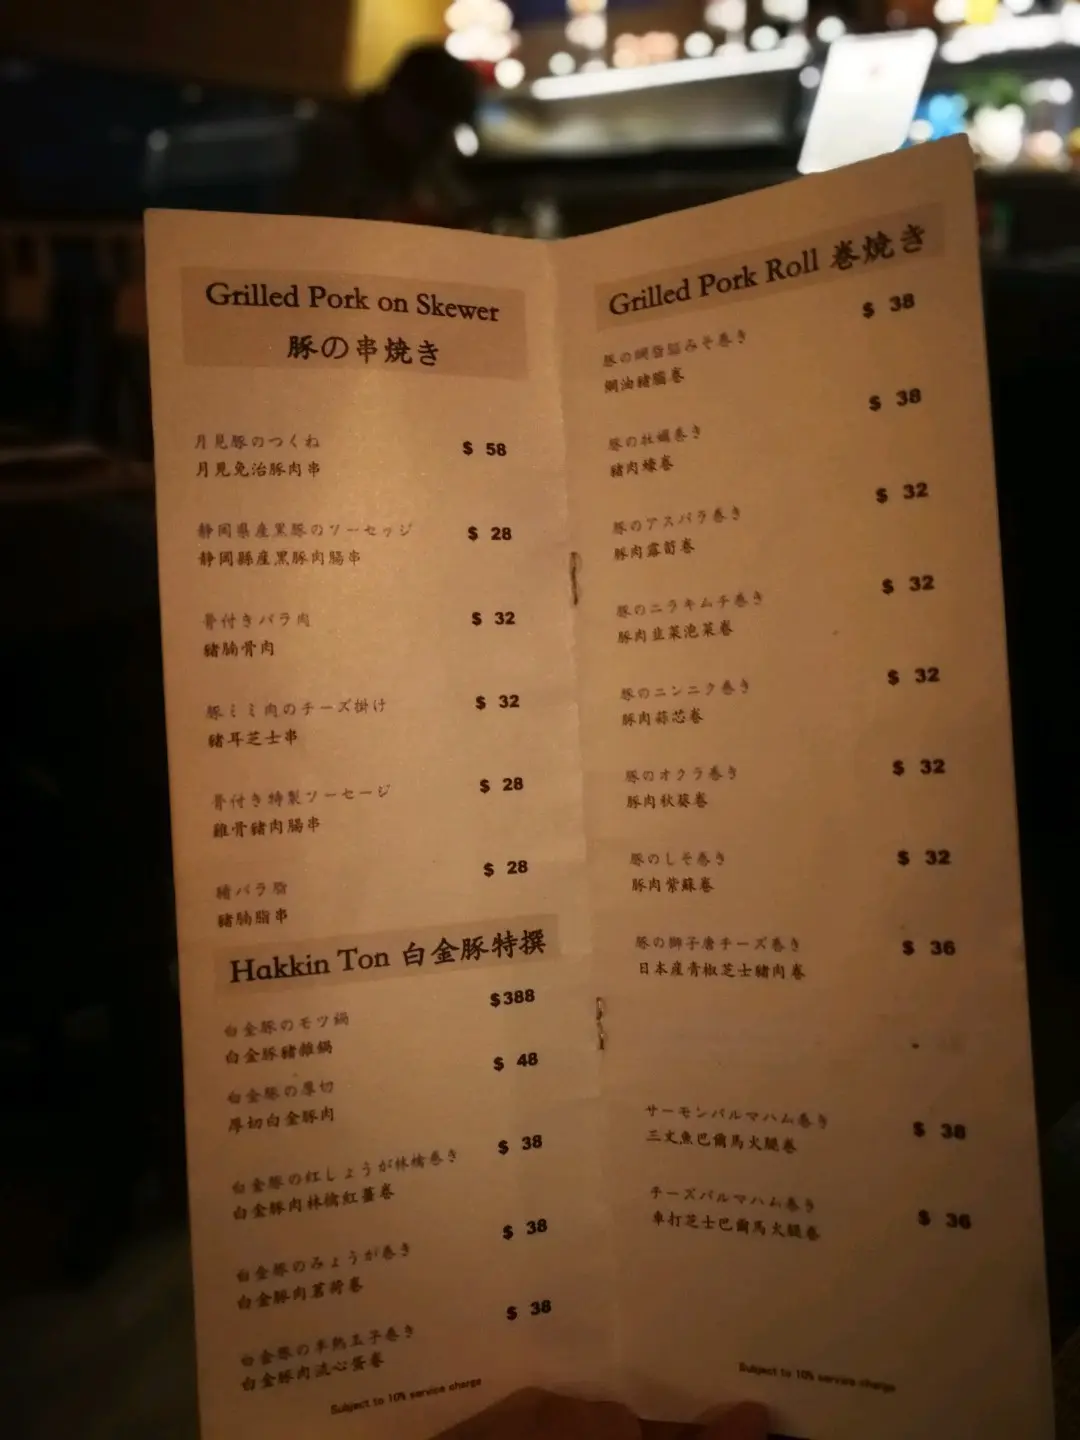 Grilled Pork on Skewer
豚の串焼き
月見豚のつくね
月見免治豚肉串
$ 58
静岡県産黒豚のソーセッジ
静岡縣産黒豚肉腸串
$ 28
骨付きバラ肉
豬腩骨肉
$ 32
豚ミミ肉のチーズ掛け
豬耳芝士串
$ 32
骨付き特製ソーセージ
雞骨豬肉腸串
$ 28
豬バラ脂
豬腩脂串
$ 28
Hakkin Ton 白金豚特撰
白金豚のモツ鍋
白金豚豬雜鍋
$388
白金豚の厚切
厚切白金豚肉
$ 48
白金豚の紅しょうが林檎巻き
白金豚肉林檎紅薑卷
$ 38
白金豚のみょうが巻き
白金豚肉茗荷卷
$ 38
白金豚の半熟玉子巻き
白金豚肉流心蛋卷
$ 38
Subject to 10% service charge
Grilled Pork Roll 巻焼き
豚の網脂脳みそ巻き
網油豬腦卷
$ 38
豚の牡蠣巻き
豬肉蠔卷
$ 38
豚のアスパラ巻き
豚肉露筍卷
$ 32
豚のニラキムチ巻き
豚肉韭菜泡菜卷
$ 32
豚のニンニク巻き
豚肉蒜芯卷
$ 32
豚のオクラ巻き
豚肉秋葵卷
$ 32
豚のしそ巻き
豚肉紫蘇卷
$ 32
豚の獅子唐チーズ巻き
日本産青椒芝士豬肉卷
$ 36
サーモンパルマハム巻き
三文魚巴爾馬火腿卷
$ 38
チーズパルマハム巻き
車打芝士巴爾馬火腿卷
$ 36
Subject to 10% service charge